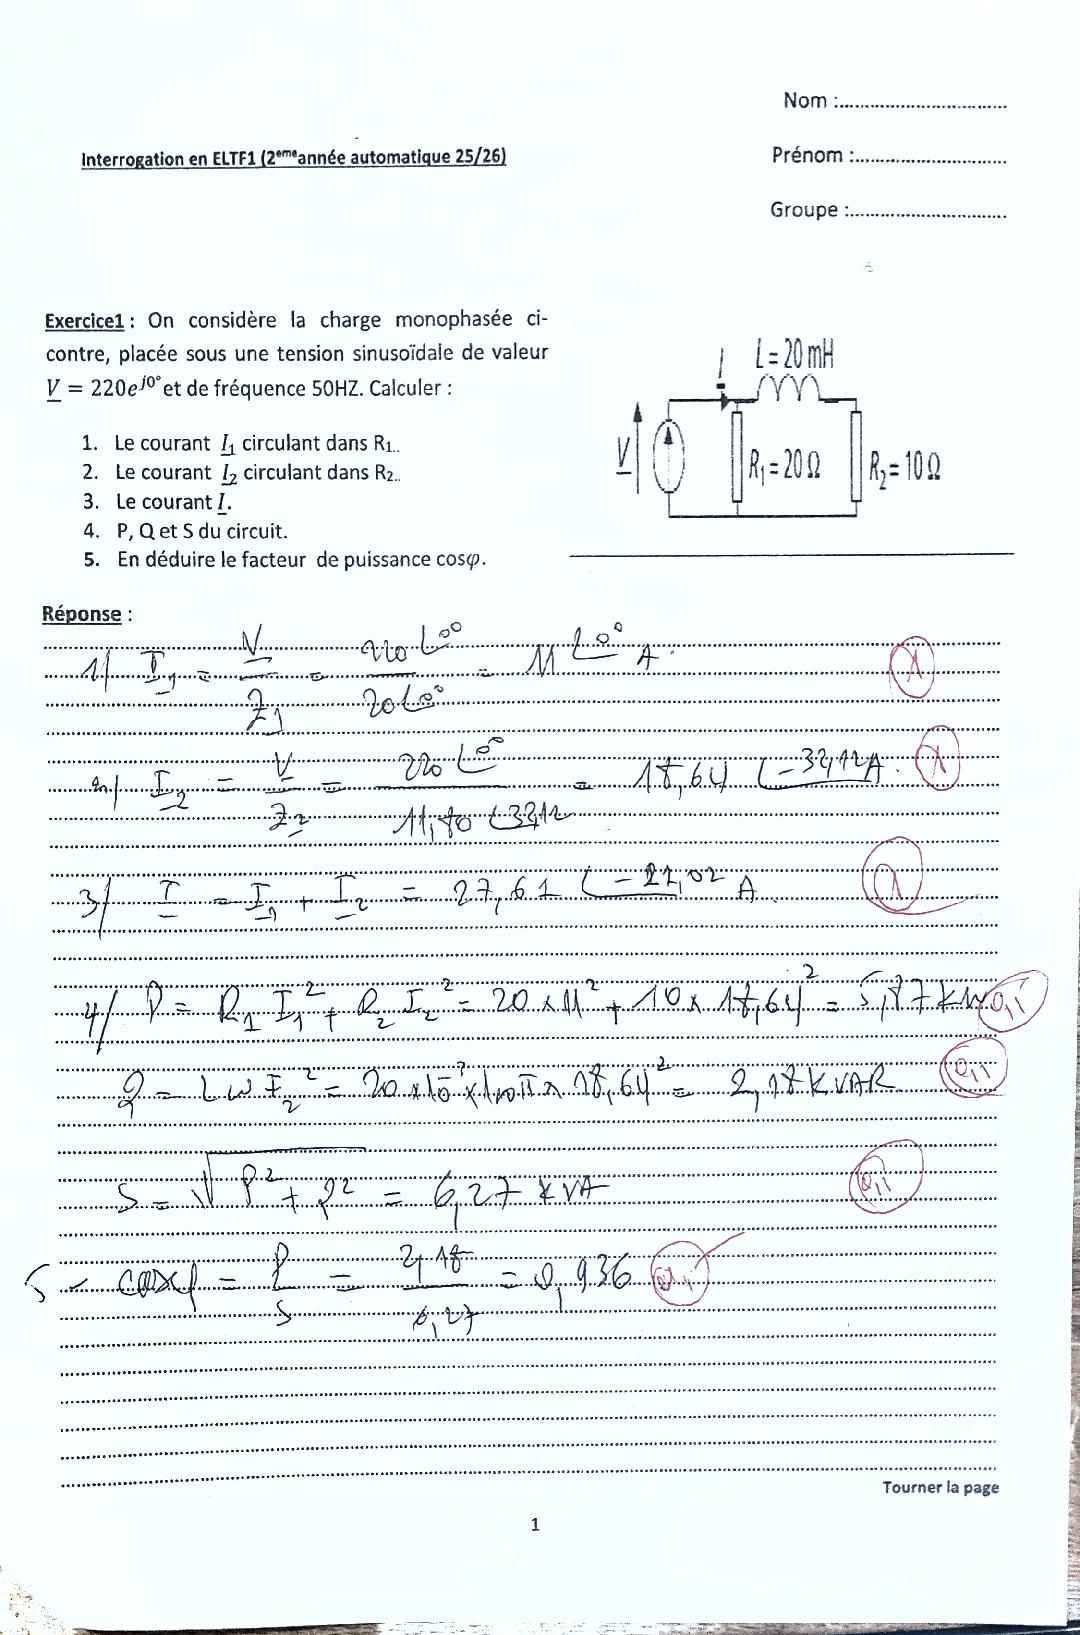 Nom :................................
Interrogation en ELTF1 (2emeannée automatique 25/26)
Prénom :............................
Groupe :.............................
Exercice1 : On considère la charge monophasée ci-
contre, placée sous une tension sinusoïdale de valeur
V = 220e^j0° et de fréquence 50HZ. Calculer :
1. Le courant I1 circulant dans R1..
2. Le courant I2 circulant dans R2..
3. Le courant I.
4. P, Q et S du circuit.
5. En déduire le facteur de puissance cosφ.
I
L=20mH
V
R1=20Ω
R2=10Ω
Réponse :
1/ I1 = V/Z1 = 220∠0°/20∠0° = 11∠0° A.
2/ I2 = V/Z2 = 220∠0°/11,80∠32,12 = 18,64∠-32,12 A.
3/ I = I1 + I2 = 27,61∠-21,02 A
4/ P = R1 I1² + R2 I2² = 20×11² + 10×18,64² = 5,87 kW
Q = Lω I2² = 20×10⁻³×100π×18,64² = 2,18 kVAR
S = √P²+Q² = 6,27 kVA
5 - cosφ = P/S = 2,18/6,27 = 0,936
Tourner la page
1